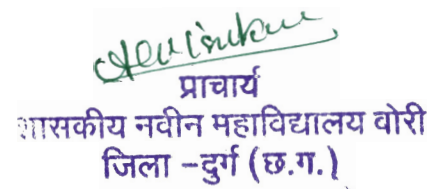 प्राचार्य
शासकीय नवीन महाविद्यालय वोरी
जिला -दुर्ग (छ.ग.)